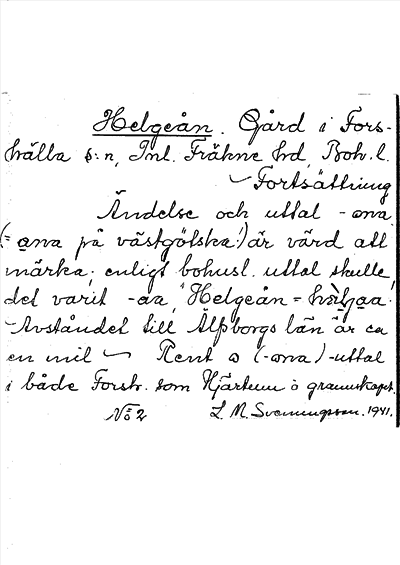 Helgeån. Gård i Fors-
hälla s:n, Inl. Fräkne hd, Boh. l.
~ Fortsättning
Ändelse och uttal -ana
(= ana på västgötska!) är värd att
märka; enligt bohusl. uttal skulle
det varit -aa, "Helgeån =
~ Avståndet till Älfborgs län är ca
en mil ~ Rent a (-ana)-uttal
i både Forsh. som Hjärtum o grannskapet.
No 2 L. M. Svenungsson. 1941.